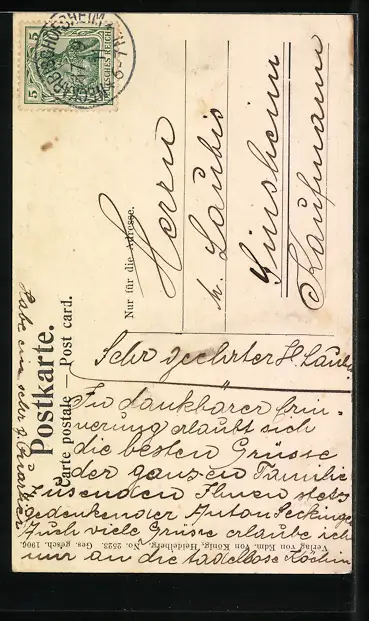 NECKARBISCHOFSHEIM
5
DEUTSCHES REICH
5
Postkarte.
Carte postale — Post card.
Nur für die Adresse.
Herrn
h. Laubis
Sinsheim
Kaufmann
Sehr geehrter H. Laubis
In dankbarer Erin-
nerung erlaubt sich
die besten Grüsse
der ganzen Familie
zusenden Ihnen stets
gedenkender Anton
Auch viele Grüsse erlaube ich
mir an die tadellose Köchin
Habe ein sehr g. Quartier
Verlag von Edm. von König, Heidelberg. No. 2523. Ges. gesch. 1906.